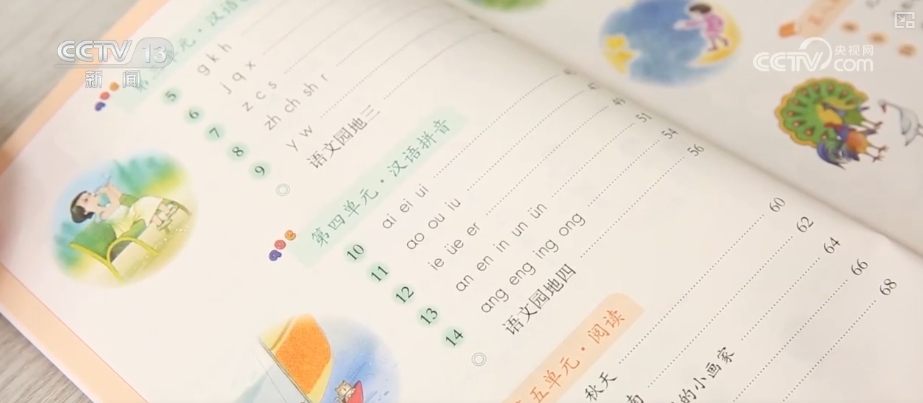 CCTV 13
新闻
央视网
CCTV.com
单元·汉语
5 g k h
6 j q x
7 z c s
8 zh ch sh r
9 y w
语文园地三
第四单元·汉语拼音
10 ai ei ui
11 ao ou iu 49
12 ie üe er 51
13 an en in un ün 54
14 ang eng ing ong 56
语文园地四
五单元·阅读
60
秋天 62
64
的小画家 66
68